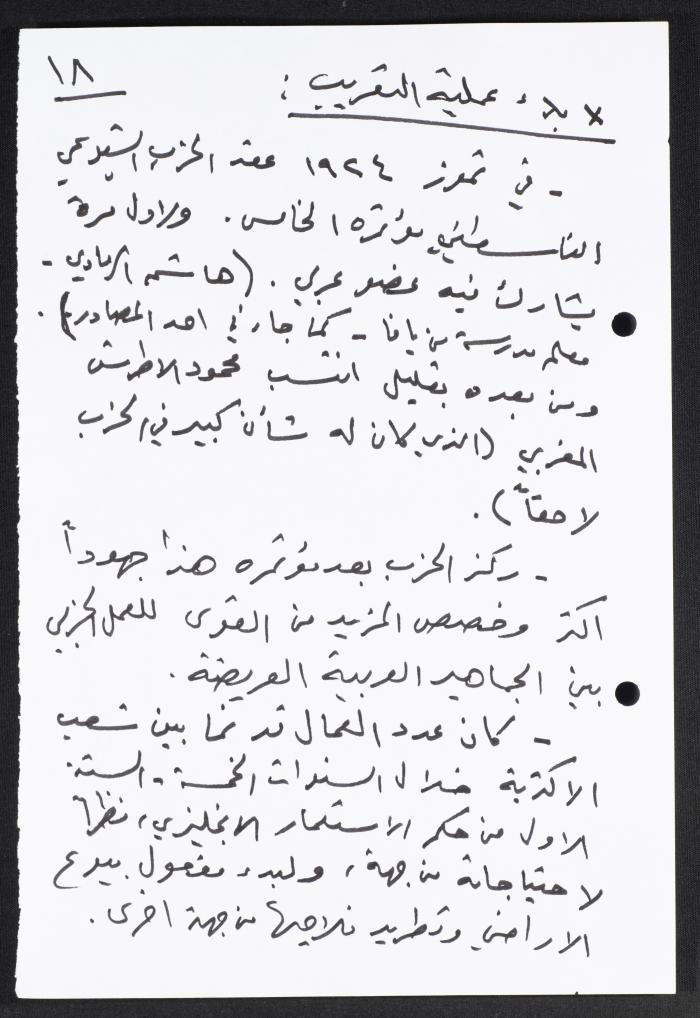 ١٨
× بدء عملية التعريب :
- في تموز ١٩٢٤ عقد الحزب الشيوعي
الفلسطيني مؤتمره الخامس. ولاول مرة
يشارك فيه عضو عربي. (هاشم الرمادي -
معلم مدرسة من يافا - كما جاء في احد المصادر).
ومن بعده بقليل انتسب محمود الاطرش
المغربي (الذي كان له شأن كبير في الحزب
لاحقاً).
- ركز الحزب بعد مؤتمره هذا جهوداً
اكثر وخصص المزيد من القوى للعمل الحزبي
بين الجماهير العربية العريضة.
- كان عدد العمال قد نما بين شعب
الاكثرية خلال السنوات الخمسة - الستة
الاولى من حكم الاستعمار الانجليزي، نظراً
لاحتياجاته من جهة، ولبدء مفعول بيوع
الاراضي وتطريد فلاحيها من جهة اخرى.